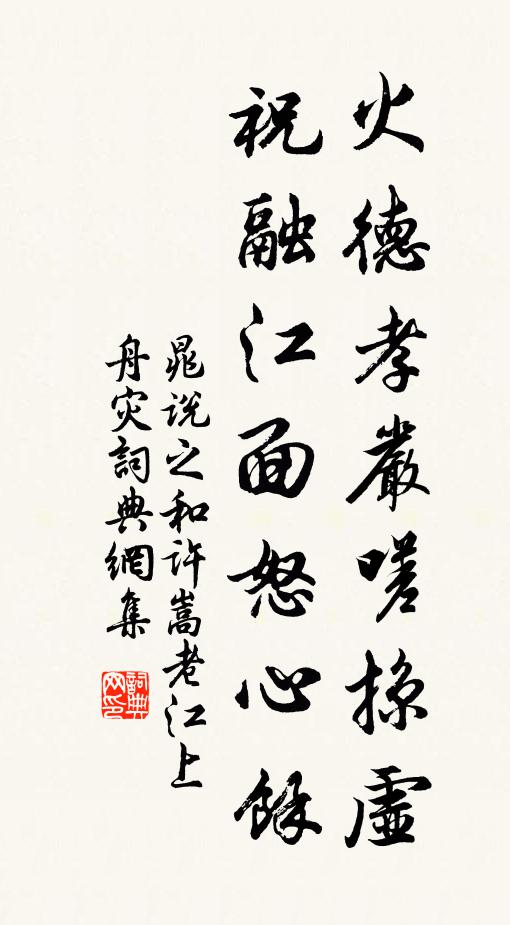 火德孝嚴嗟掠虛
祝融江面怒心餘
晁说之和許嵩老江上
舟灾詞典網集
詞典网印